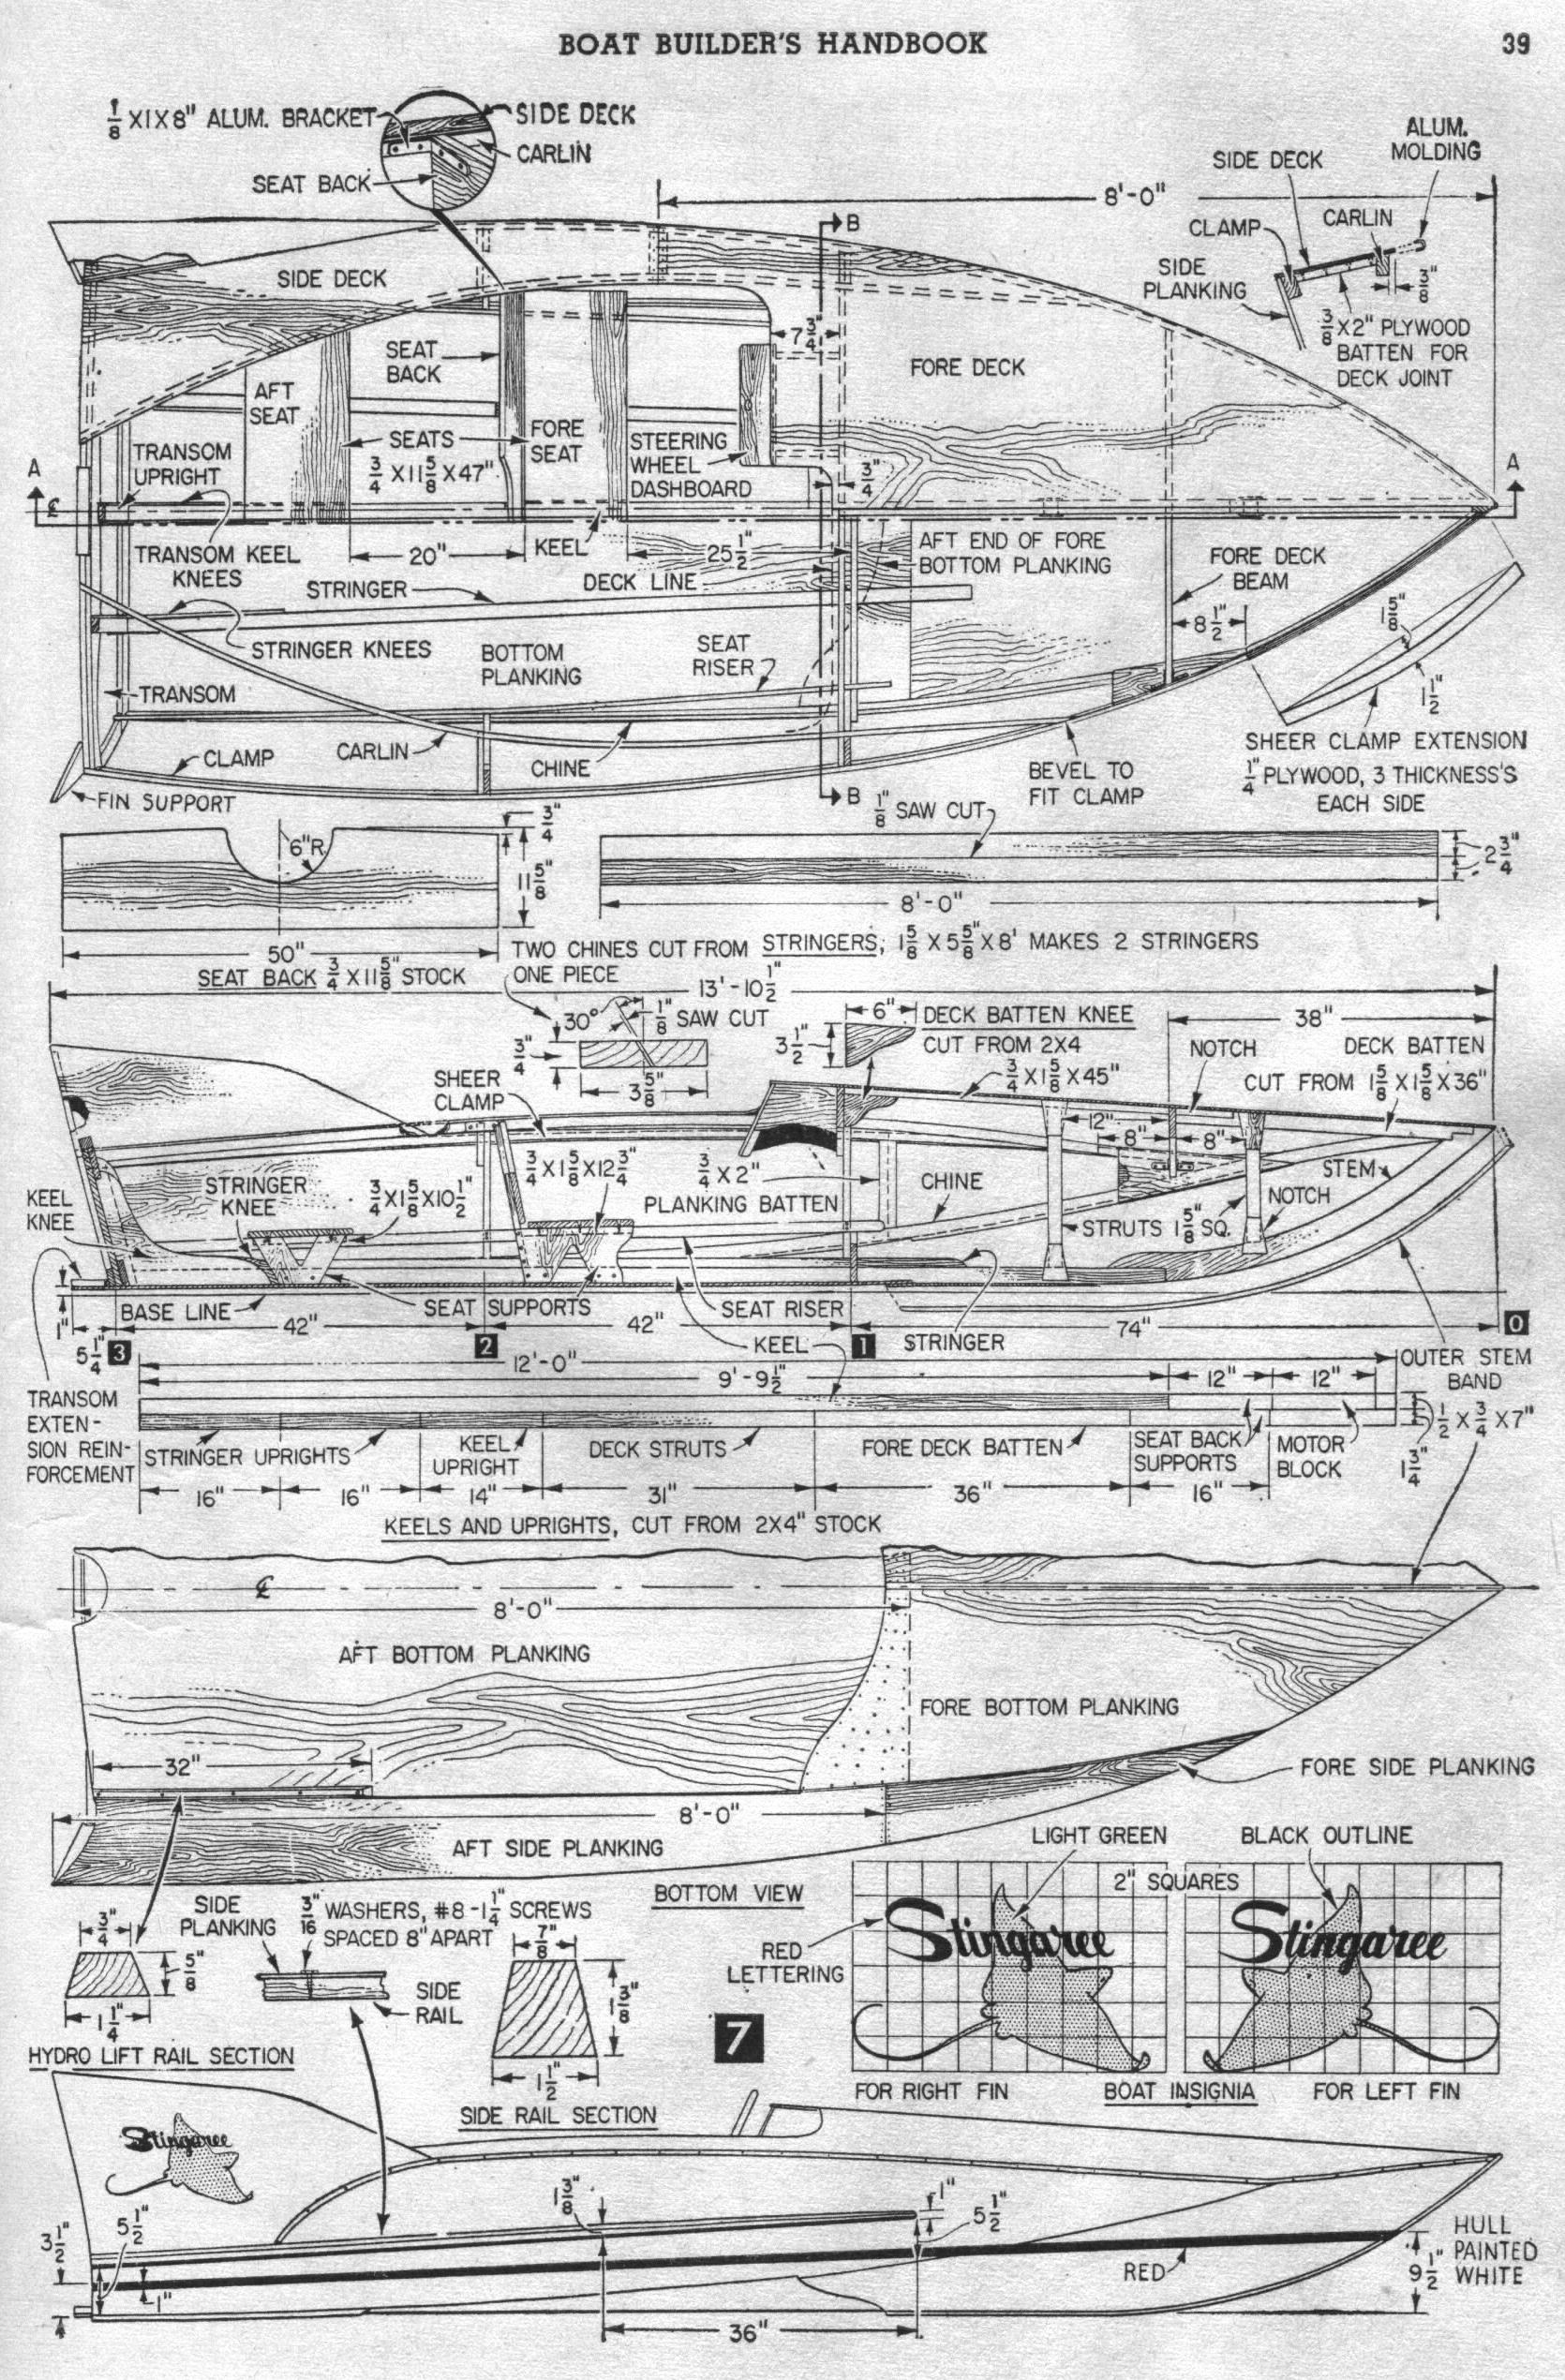 BOAT BUILDER'S HANDBOOK
39
1/8 X1X8" ALUM. BRACKET
SIDE DECK
CARLIN
SEAT BACK
8'-0"
ALUM.
MOLDING
SIDE DECK
CARLIN
CLAMP
SIDE
PLANKING
3/8"
3/8 X2" PLYWOOD
BATTEN FOR
DECK JOINT
B
SIDE DECK
7 3/4"
SEAT
BACK
FORE DECK
AFT
SEAT
TRANSOM
UPRIGHT
SEATS
3/4 X11 5/8 X47"
FORE
SEAT
STEERING
WHEEL
DASHBOARD
3/4"
A
A
℄
TRANSOM KEEL
KNEES
20"
KEEL
25 1/2"
AFT END OF FORE
BOTTOM PLANKING
FORE DECK
BEAM
STRINGER
DECK LINE
8 1/2"
1 5/8"
1 1/2"
STRINGER KNEES
BOTTOM
PLANKING
SEAT
RISER
TRANSOM
CLAMP
CARLIN
CHINE
BEVEL TO
FIT CLAMP
SHEER CLAMP EXTENSION
1/4" PLYWOOD, 3 THICKNESS'S
EACH SIDE
FIN SUPPORT
B
1/8" SAW CUT
6"R.
3/4"
11 5/8"
2 3/4"
8'-0"
50"
SEAT BACK 3/4 X11 5/8" STOCK
TWO CHINES CUT FROM
ONE PIECE
STRINGERS, 1 5/8 X 5 5/8" X 8' MAKES 2 STRINGERS
13'-10 1/2"
30°
1/8" SAW CUT
3/4"
3 5/8"
6"
3 1/2"
DECK BATTEN KNEE
CUT FROM 2X4
38"
NOTCH
DECK BATTEN
CUT FROM 1 5/8 X1 5/8 X36"
3/4 X1 5/8 X45"
SHEER
CLAMP
12"
8"
8"
KEEL
KNEE
STRINGER
KNEE
3/4 X1 5/8 X10 1/2"
3/4 X1 5/8 X12 3/4"
3/4 X2"
PLANKING BATTEN
CHINE
STEM
NOTCH
STRUTS 1 5/8" SQ.
BASE LINE
SEAT SUPPORTS
SEAT RISER
1"
5 1/4"
3
42"
2
42"
KEEL
1
STRINGER
74"
0
12'-0"
9'-9 1/2"
12"
12"
OUTER STEM
BAND
1/2 X 3/4 X7"
TRANSOM
EXTEN-
SION REIN-
FORCEMENT
STRINGER UPRIGHTS
KEEL
UPRIGHT
DECK STRUTS
FORE DECK BATTEN
SEAT BACK
SUPPORTS
MOTOR
BLOCK
1 3/4"
16"
16"
14"
31"
36"
16"
KEELS AND UPRIGHTS, CUT FROM 2X4" STOCK
℄
8'-0"
AFT BOTTOM PLANKING
FORE BOTTOM PLANKING
32"
FORE SIDE PLANKING
8'-0"
AFT SIDE PLANKING
BOTTOM VIEW
LIGHT GREEN
BLACK OUTLINE
2" SQUARES
RED
LETTERING
Stingaree
Stingaree
SIDE
PLANKING
3/16" WASHERS, #8-1 1/4" SCREWS
SPACED 8" APART
3/4"
5/8"
1 1/4"
SIDE
RAIL
7/8"
1 3/8"
1 1/2"
7
HYDRO LIFT RAIL SECTION
SIDE RAIL SECTION
FOR RIGHT FIN
BOAT INSIGNIA
FOR LEFT FIN
Stingaree
1 3/8"
1"
5 1/2"
3 1/2"
5 1/2"
1"
RED
9 1/2"
HULL
PAINTED
WHITE
36"